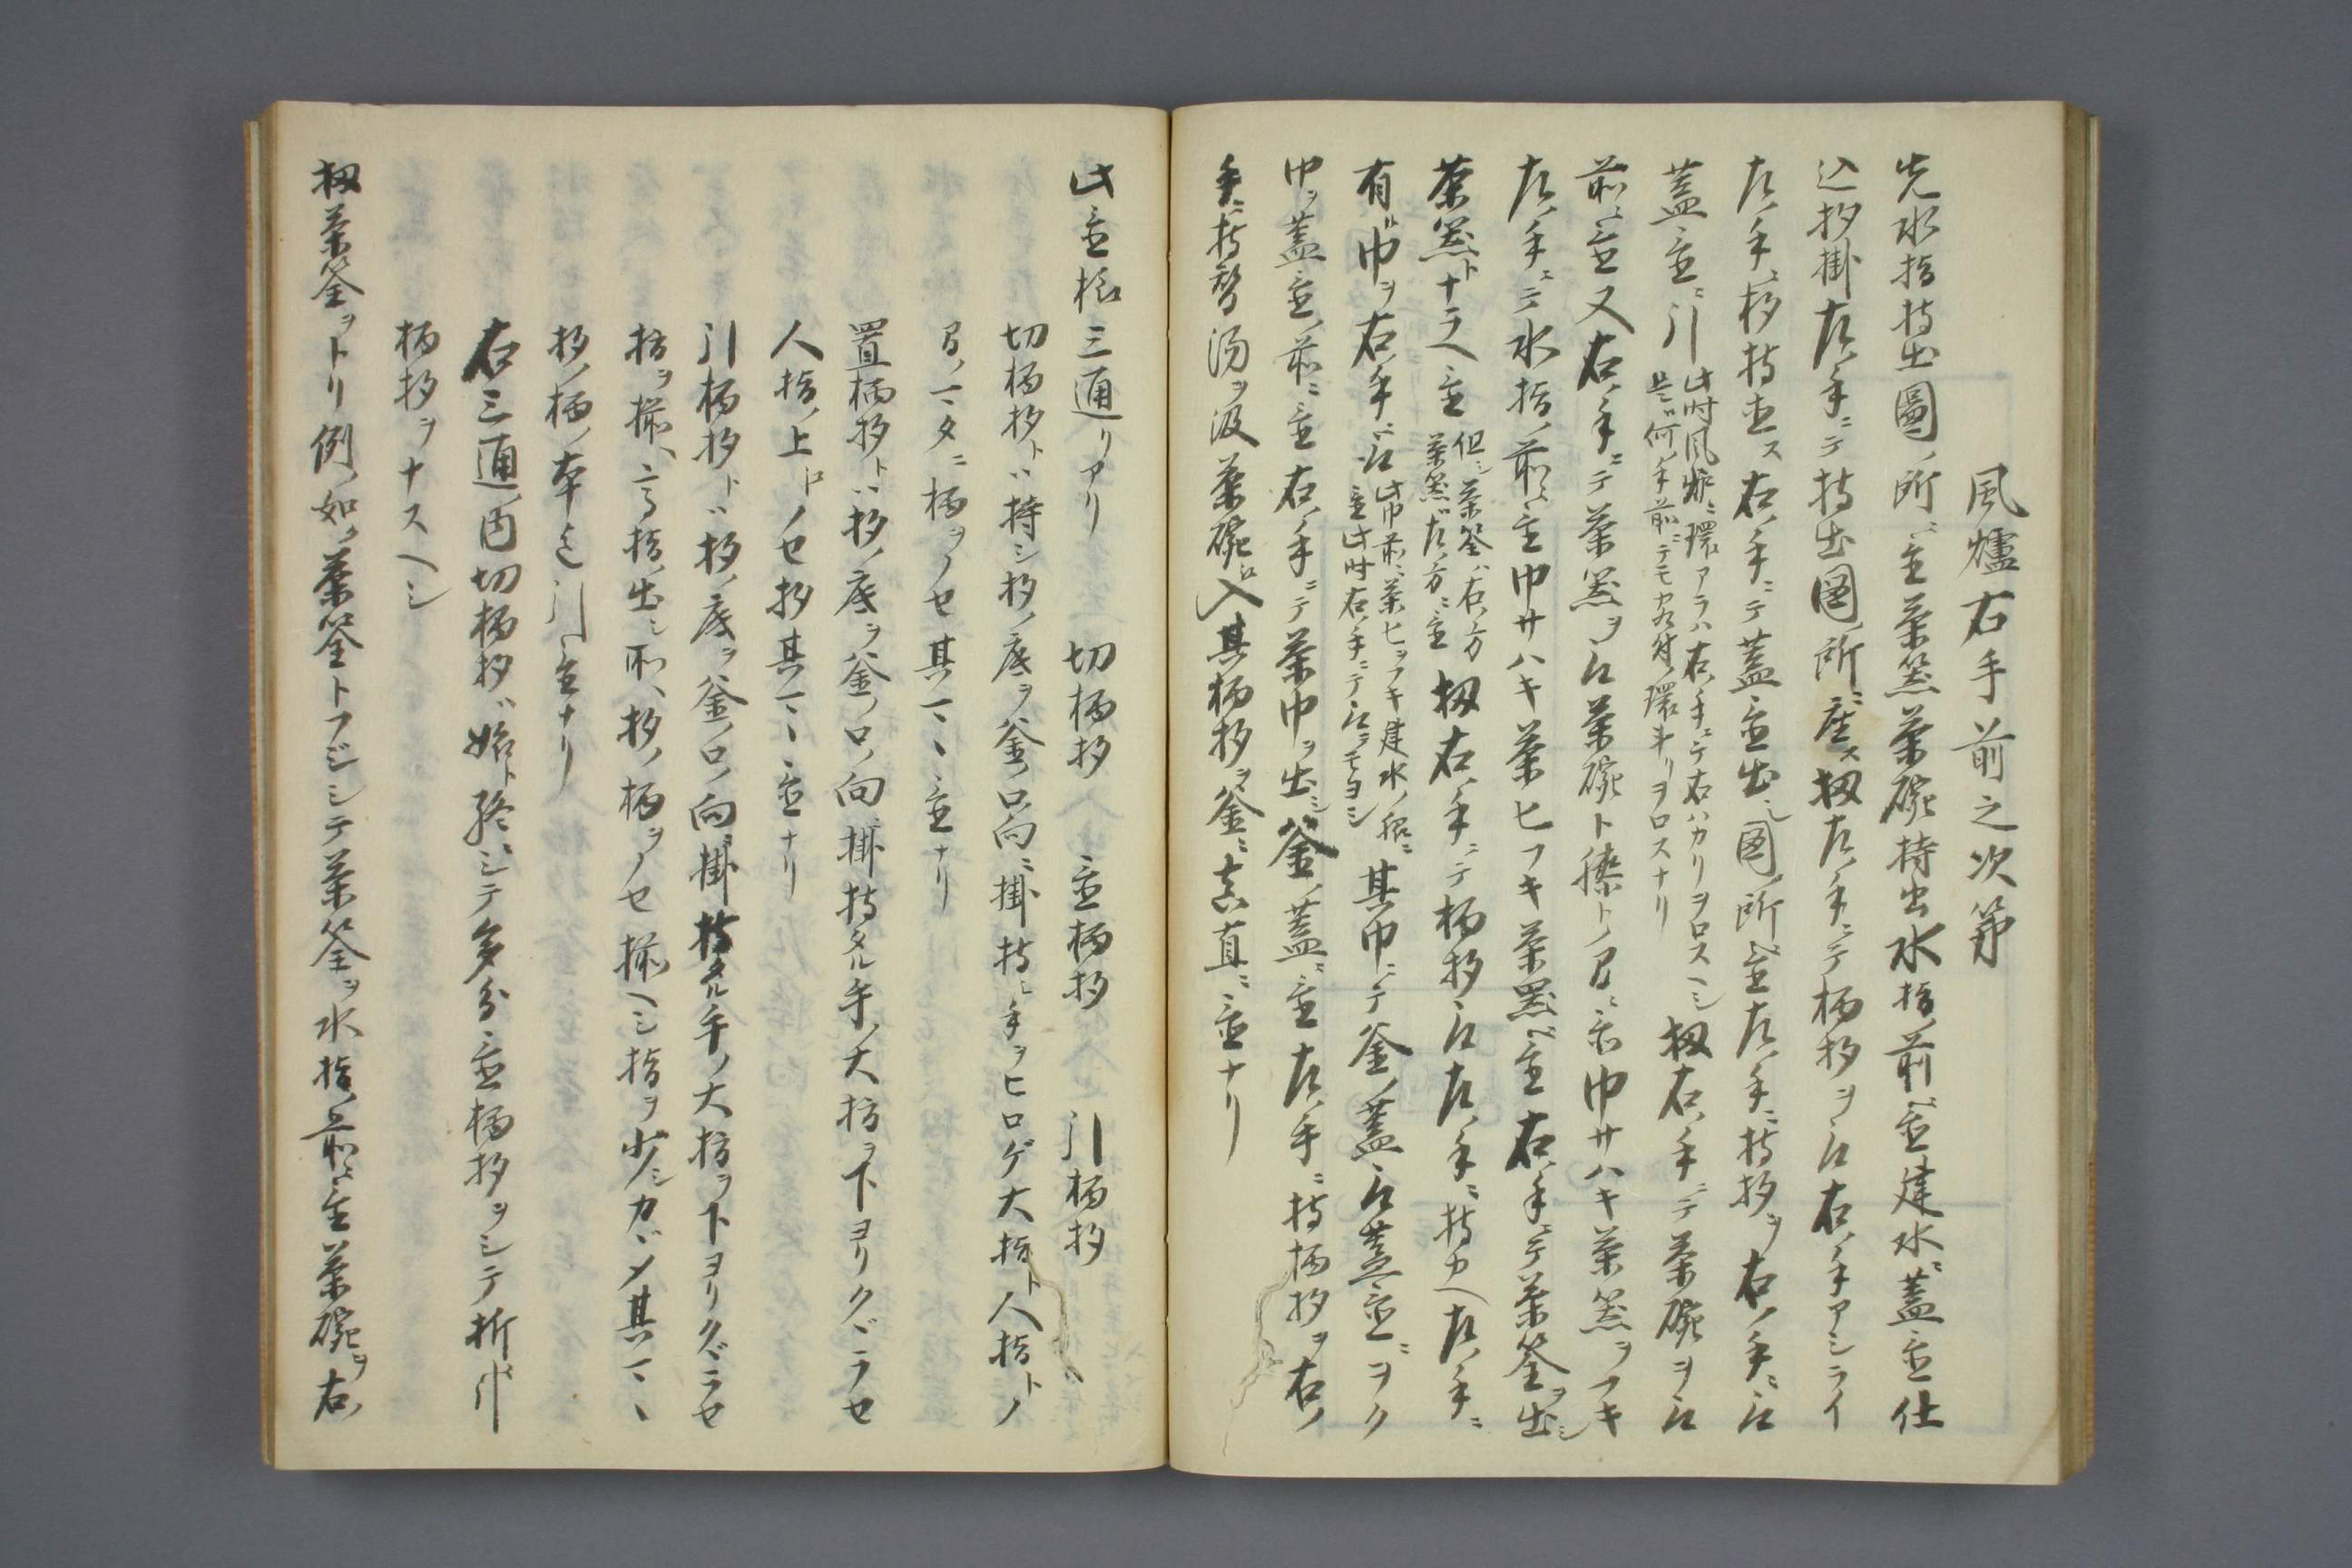 風爐右手前之次第
先水指持出圖ノ所ニ置茶器茶碗持出水指ノ前ヘ置建水ニ蓋置仕
込杓掛左ノ手ニテ持出圖ノ所ニ座ス扨左ノ手ニテ柄杓ヲ取右ノ手アシライ
左ノ手ニ杓持直ス右ノ手ニテ蓋置出シ圖ノ所ヘ置左ノ手ニ持杓ヲ右ノ手ニ取
蓋置ニ引
此時風炉ニ環アラハ右ノ手ニテ右ハカリヲロスヘシ
是ハ何ノ手前ニテモ客付ノ環斗リヲロスナリ
扨右ノ手ニテ茶碗ヲ取
前ニ置又右ノ手ニテ茶器ヲ取茶碗ト膝トノ間ニ置巾サハキ茶器ヲフキ
左ノ手ニテ水指ノ前ニ置巾サハキ茶ヒフキ茶器ヘ置右ノ手ニテ茶筌ヲ出シ
茶器トナラヘ置
但シ茶筌ハ右ノ方
茶器ハ左ノ方ニ置
扨右ノ手ニテ柄杓取左ノ手ニ持カヘ左ノ手ニ
有ル巾ヲ右ノ手ニ取
此巾前ニ茶ヒヲフキ建水ノ脇ニ
置此時右ノ手ニテ取ヲモヨシ
其巾ニテ釜ノ蓋取蓋置ニヲク
巾ヲ蓋置ノ前ニ置右ノ手ニテ茶巾ヲ出シ釜ノ蓋ニ置左ノ手ニ持柄杓ヲ右ノ
手ニ持替湯ヲ汲茶碗ニ入其柄杓ヲ釜ニ真直ニ置ナリ
此置様三通リアリ　切柄杓　置柄杓　引柄杓
切柄杓トハ持シ杓ノ底ヲ釜ノ口ノ向ニ掛持シ手ヲヒロゲ大指ト人指トノ
間ノマタニ柄ヲノセ其マヽ置ナリ
置柄杓トハ杓ノ底ヲ釜ノ口ノ向ニ掛持タル手ノ大指ヲ下ヨリクヾラセ
人指ノ上ニノセ杓其マヽ置ナリ
引柄杓トハ杓ノ底ヲ釜ノ口ノ向ニ掛持タル手ノ大指ヲ下ヨリクヾラセ
指ヲ揃ヘ高指ノ出シ所ヘ杓ノ柄ヲノセ揃ヘシ指ヲ少シカヾメ其マヽ
杓ノ柄ノ本迄引置ナリ
右三通ノ内切柄杓ハ始ト終ニシテ多分ニ置柄杓ヲシテ折々引
柄杓ヲナスヘシ
扨茶筌ヲトリ例ノ如ク茶筌トフジシテ茶筌ヲ水指ノ前ニ置茶碗ヲ右ノ